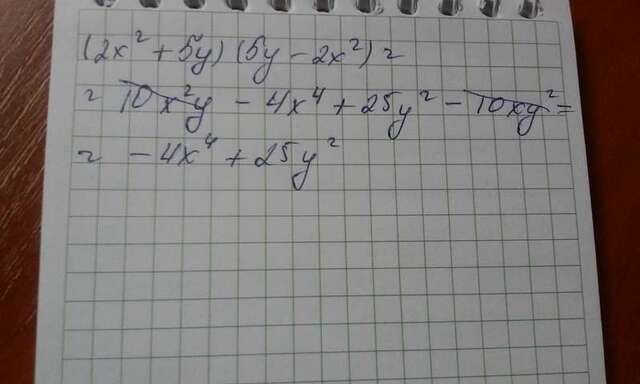 (2x² + 5y) (5y - 2x²) =
= 10x²y - 4x⁴ + 25y² - 10xy² =
= - 4x⁴ + 25y²